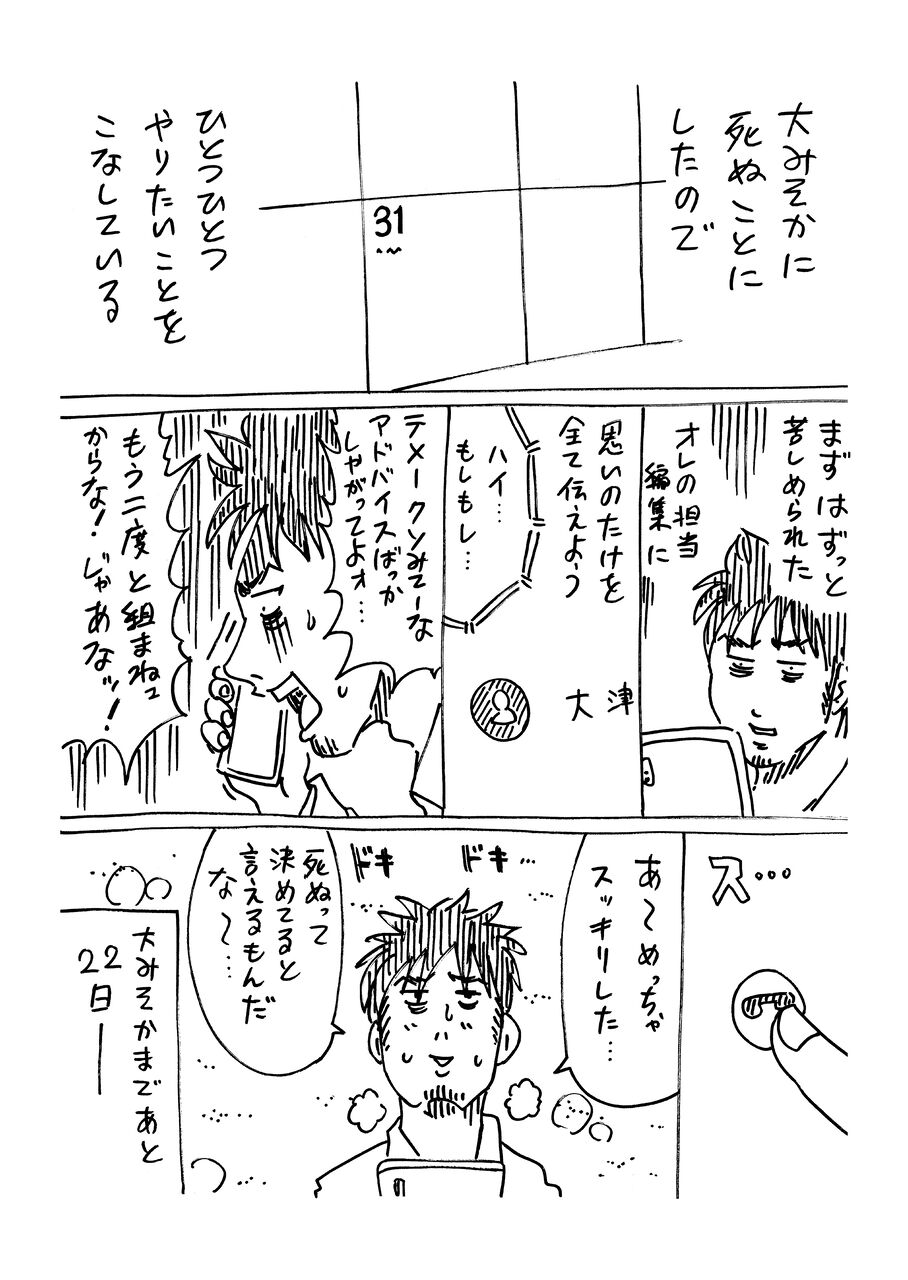 大みそかに
死ぬことに
したので
31
ひとつひとつ
やりたいことを
こなしている
まずはずっと
苦しめられた
オレの担当
編集に
思いのたけを
全て伝えよう
ハイ…
もしもし…
大津
テメークソみてーな
アドバイスばっか
しやがってよォ…
もう二度と組まねっ
からな!じゃあなッ!
ス…
あ〜めっちゃ
スッキリした…
ドキ…
ドキ
死ぬって
決めてると
言えるもんだ
な〜…
大みそかまであと
22日―